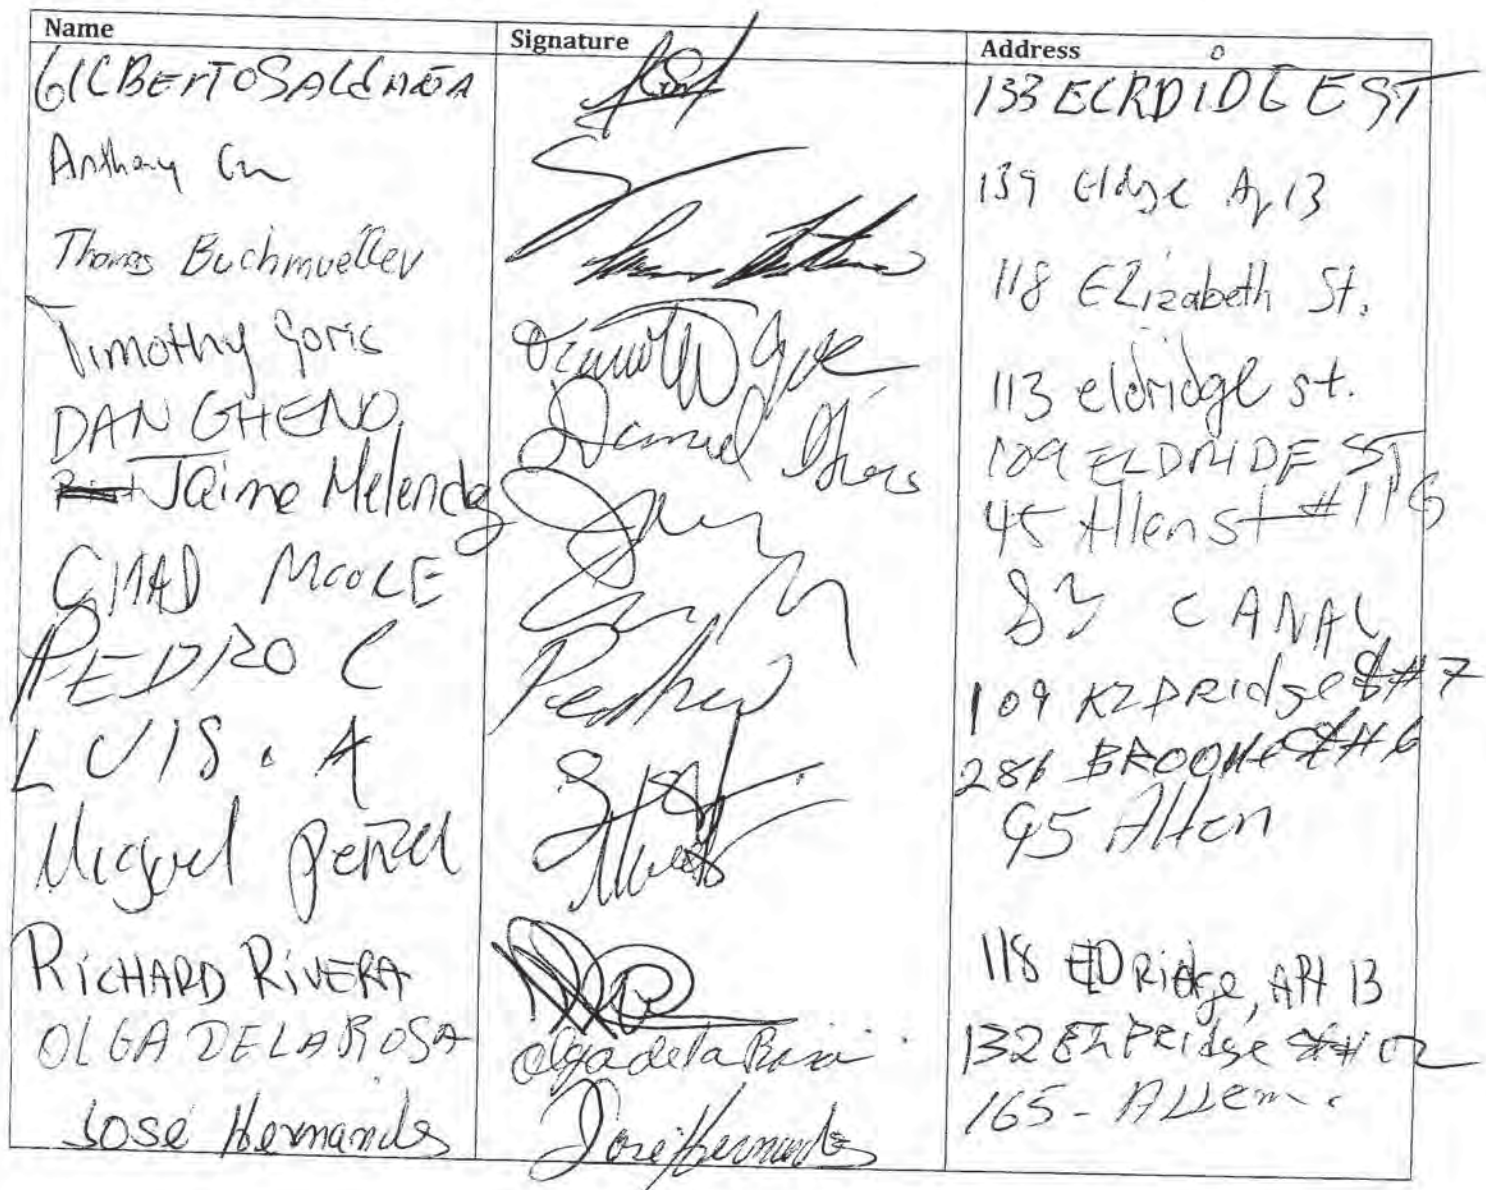 Name Signature Address
GILBERTO SALDAÑA 133 ECRDIDGE ST
Anthony 139 Eldge Ap 13
Thomas Buchmueller 118 Elizabeth St.
Timothy Goris 113 eldridge st.
DAN GHENO Daniel Gheno 109 ELDRIDE ST
Jaime Melendez 45 Allen st #11G
CHAD MOORE 83 CANAL
PEDRO C Pedro 109 ELDRidge St #7
LUIS. A 286 BROOME St #6
Miguel Peña 95 Allen
RICHARD RIVERA 118 ElDRidge, APt 13
OLGA DE LA ROSA Olga de la Rosa 132 ElDRidge
José Hernandes José Hernandes 165 - Allem.